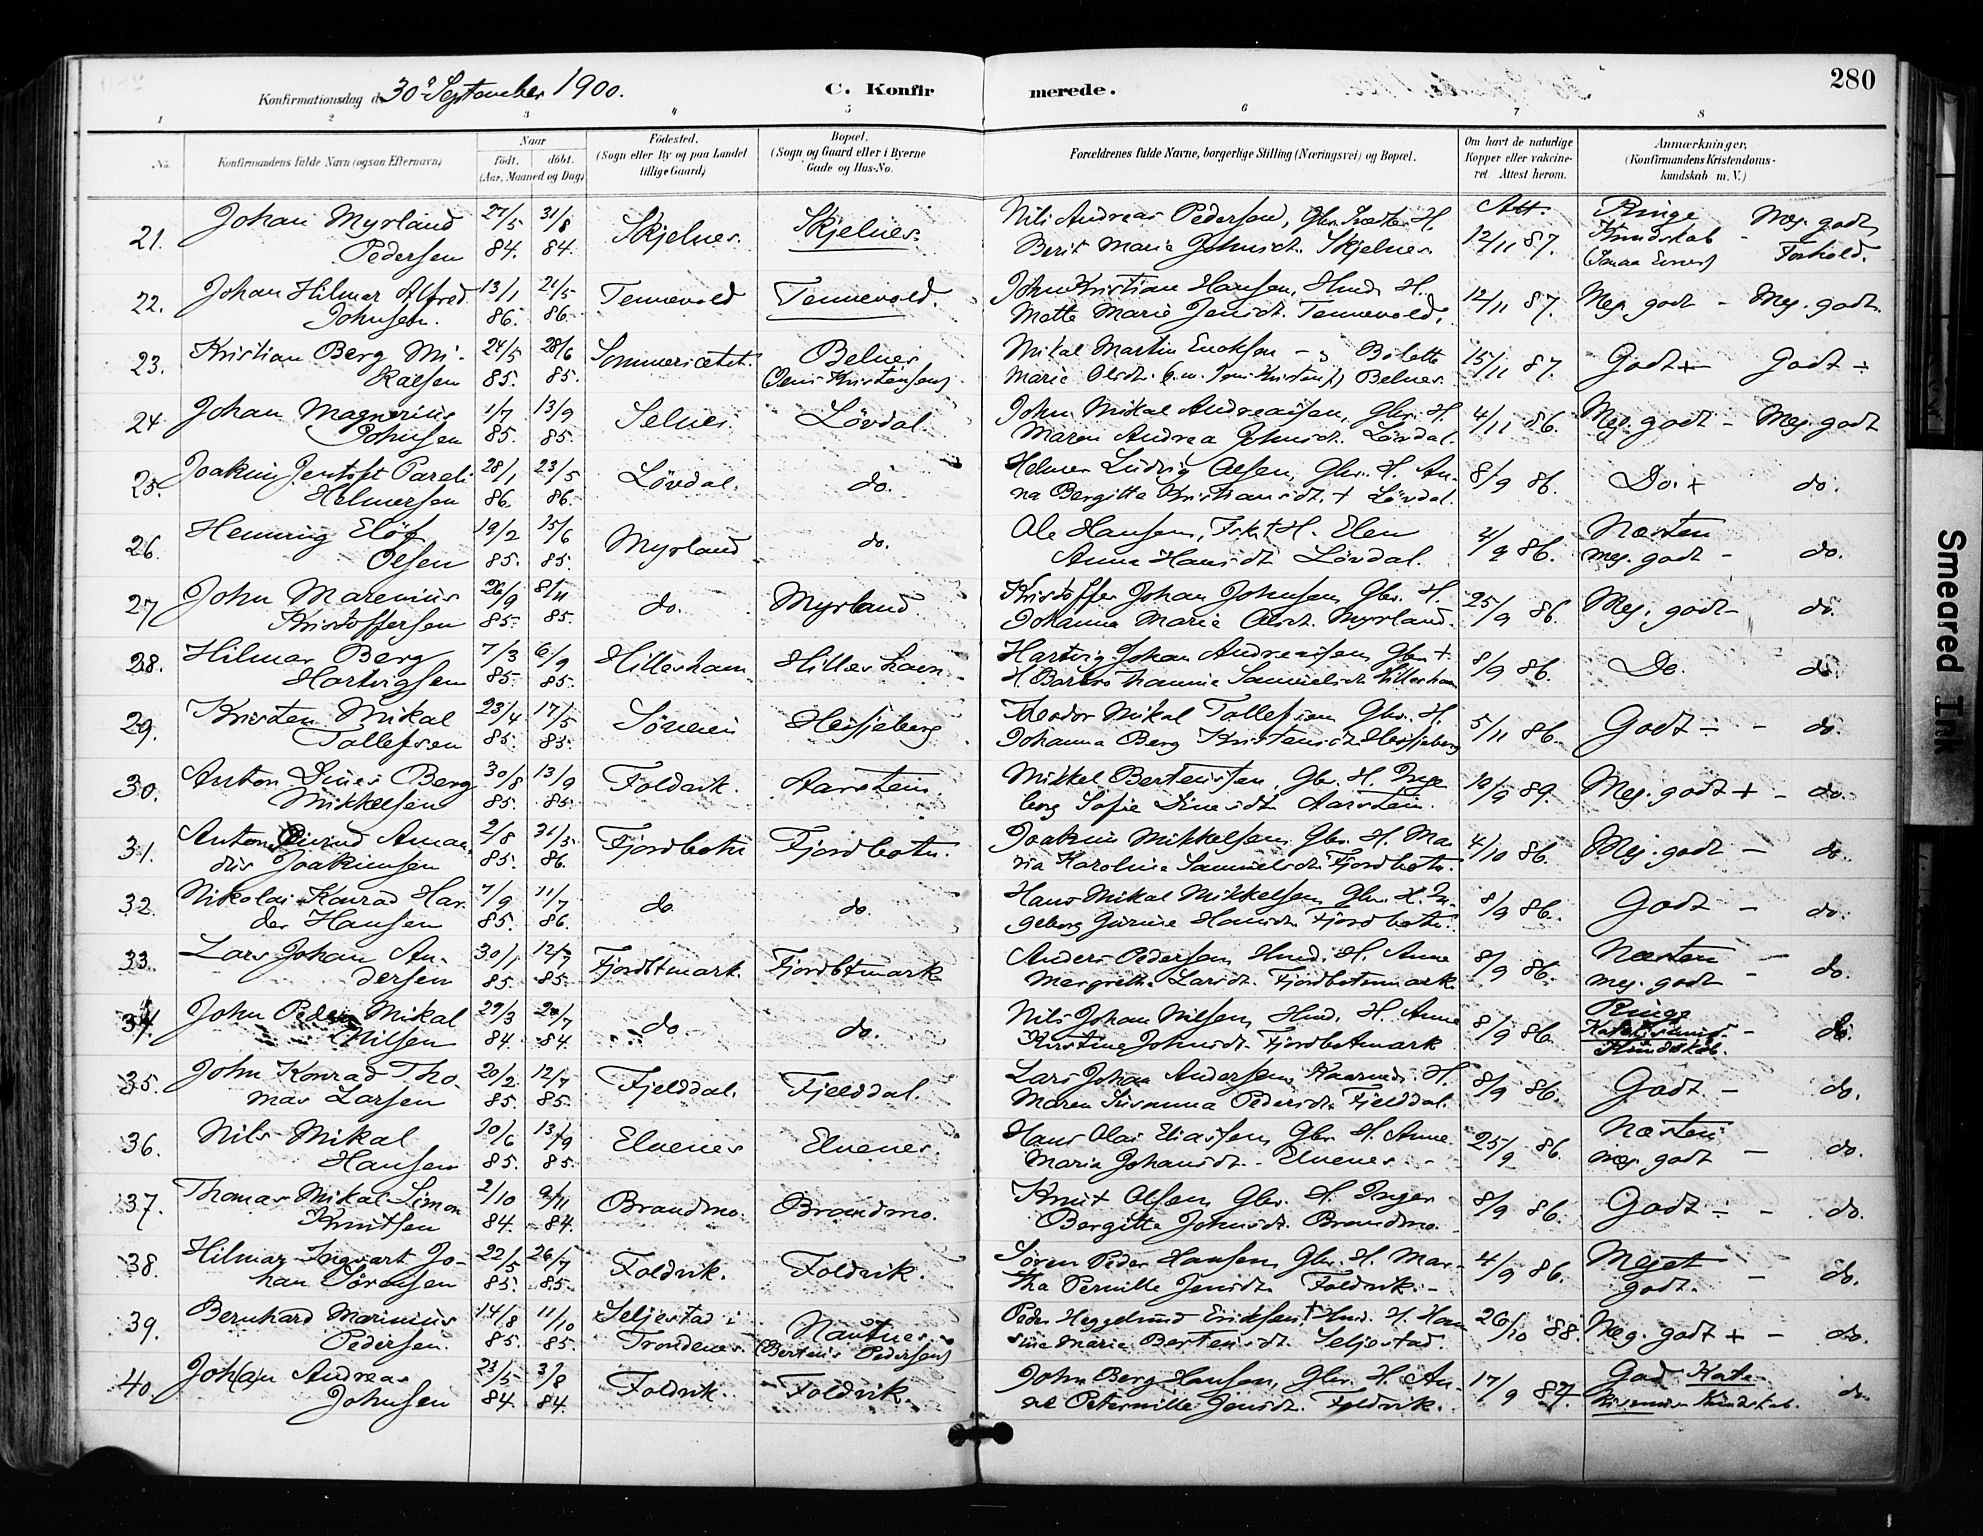 Konfirmationsdag d. 30te September 1900. C. Konfirmerede. 280
1 2 3 4 5 6 7 8
No. Konfirmandens fulde Navn (ogsaa Efternavn) Naar födt. döbt. (Aar, Maaned og Dag) Födested. (Sogn eller By og paa Landet tillige Gaard) Bopæl. (Sogn og Gaard eller i Byerne Gade og Hus-No. Forældrenes fulde Navne, borgerlige Stilling (Næringsvei) og Bopæl. Om havt de naturlige Kopper eller vakcineret Attest herom. Anmærkninger, (Konfirmandens Kristendomskundskab m. V.)
21. Johan Myrland 27/5 31/8 Skjelnes. Skjelnes. Nils Andreas Pedersen, Gbr. H. Att. Ringe Meg. godt
Pedersen 84. 84. Berit Maria Johnsdt. Skjelnes 12/11 87. Kundskab Forhold.
22. Johan Hilmar Alfred 13/1 21/5 Tennevold Tennevold. John Kristian Hansen, Hmd. H. 12/11 87. Meg. godt - Meg. godt
Johnsen. 86. 86. Mette Marie Jensdt. Tennevold.
23. Kristian Berg Mi- 24/5 28/6 Sommersætet. Belnes Mikal Martin Enoksen - Bolette 15/11 87. Godt + Godt ÷
kalsen 85. 85. Marie Olsdt. Belnes.
24. Johan Magnerius 1/7 13/9 Selnes. Lövdal. John Mikal Andreassen, Gbr. H. 4/11 86. Meg. godt - Meg. godt
Johnsen 85. 85. Maren Andrea Johnsdt. Lövdal.
25. Joakim Jentoft Pareli 28/1 23/5 Lövdal. do. Helmer Ludvig Olsen, Gbr. H. An- 8/9 86. Do. + do.
Helmersen 86. 86. na Bergitte Kristiansdt. + Lövdal.
26. Henning Elöf 19/2 15/6 Myrland do. Ole Hansen, Fsk. + H. Elen 4/9 86. Næsten
Olsen 85. 85. Anna Hansdt. Lövdal. meg. godt - do.
27. John Marenius 26/9 8/11 do. Myrland Kristoffer Johan Johnsen, Gbr. H. 25/9 86. Meg. godt - do.
Kristoffersen 85. 85. Johanna Marie Olsdt. Myrland.
28. Hilmar Berg 7/3 6/9 Hilleshamn Hilleshavn Hartvig Johan Andreassen, Gbr. + 8/9 86. Do. do.
Hartvigsen 85. 85. H. Barbro Hannine Samuelsdt. Hilleshamn
29. Kristen Mikal 23/4 17/5 Heisjeberg Teodor Mikal Tollefsen Gbr. H. 5/11 86. Godt ÷ - do.
Tollefsen 85. 85. Johanna Berg Kristensdt. Heisjeberg
30. Anton Dines Berg 30/8 13/9 Foldvik. Aarstein. Mikkel Berteussen, Gbr. H. Inge- 89. Meg. godt + - do.
Mikkelsen 85. 85. borg Sofie Dinesdt. Aarstein.
31. Anton Eivind Aman- 2/8 31/5 Fjordbotn Fjordbotn. Joakim Mikkelsen, Gbr. H. Ma- 4/10 86. Meg. godt - do.
dus Joakimsen 85. 86. ria Karoline Samuelsdt. Fjordbotn.
32. Nikolai Konrad Har- 7/9 11/7 do. do. Hans Mikal Mikkelsen, Gbr. H. In- 8/9 86. Godt - do.
der Hansen 85. 86. geborg Gurine Hansdt. Fjordbotn.
33. Lars Johan An- 30/1 12/7 Fjordbtmark. Fjordbtmark Anders Pedersen, Hmd. H. Anne 8/9 86. Næsten
dersen 85. 85. Margrethe Larsdt. Fjordbotnmark. meg. godt - do.
34. John Peder Mikal 29/3 20/7 do. do. Nils Johan Nilsen, Hmd. H. Anne 8/9 86. Ringe
Nilsen 84. 84. Kirstine Johnsdt. Fjordbotmark Kundskab. - do.
35. John Konrad Tho- 20/2 12/7 Fjelddal. Fjelddal. Lars Johan Andersen, H. 8/9 86. Godt - do.
mas Larsen 85. 85. Maren Susanna Pedersdt. Fjelddal.
36. Nils Mikal 20/6 13/9 Elvenes Elvenes. Hans Olai Eliassen, Gbr. H. Anne 25/9 86. Næsten
Hansen 85. 85. Maria Johansdt. Elvenes. meg. godt - do.
37. Thomas Mikal Simon 2/10 9/11 Brandmo. Brandmo. Knut Olsen, Gbr. H. Inger 8/9 86. Godt ÷ - do.
Knutsen 84. 84. Bergitte Johnsdt. Brandmo.
38. Hilmar Ingvart Jo- 22/5 26/7 Foldvik. Foldvik. Sören Peder Hansen, Gbr. H. Mar- 4/9 86. Meget
han Sörensen 85. 85. tha Pernille Jensdt. Foldvik. - godt. - do.
39. Bernhard Marinius 14/8 11/10 Seljestad i Nautnes. Peder Heggelund Eriksen, + Hmd. H. Han- 26/10 88. Meg. godt + - do.
Pedersen. 85. 85. Trondenes. (Berteus Pedersen) sine Marie Berteusdt. Seljestad.
40. Joh(a)n Andreas 23/5 3/8 Foldvik. Foldvik. John Berg Hansen, Gbr. H. An- 17/9 87. God Kate-
Johnsen 84. 84. ne Peternille Jensdt. Foldvik. Kundskab. do.
Smeared Ink